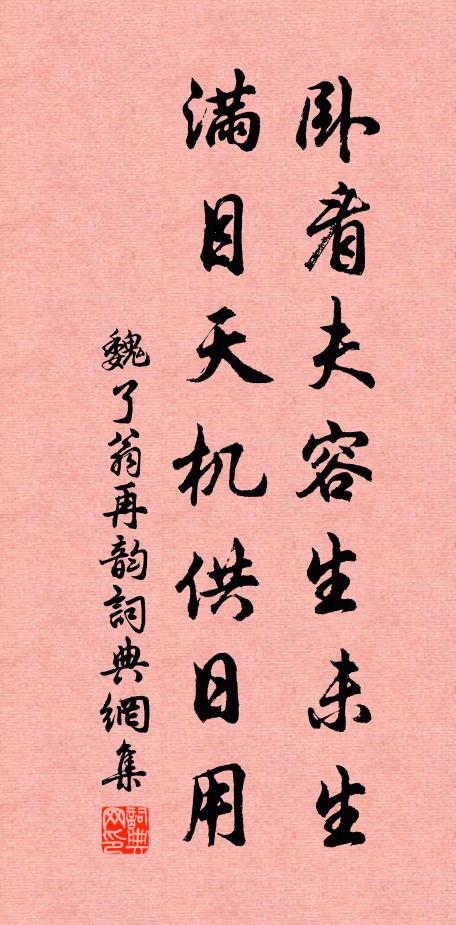 卧看夫容生未生
满目天机供日用
魏了翁再韵詞典網集
詞典网印